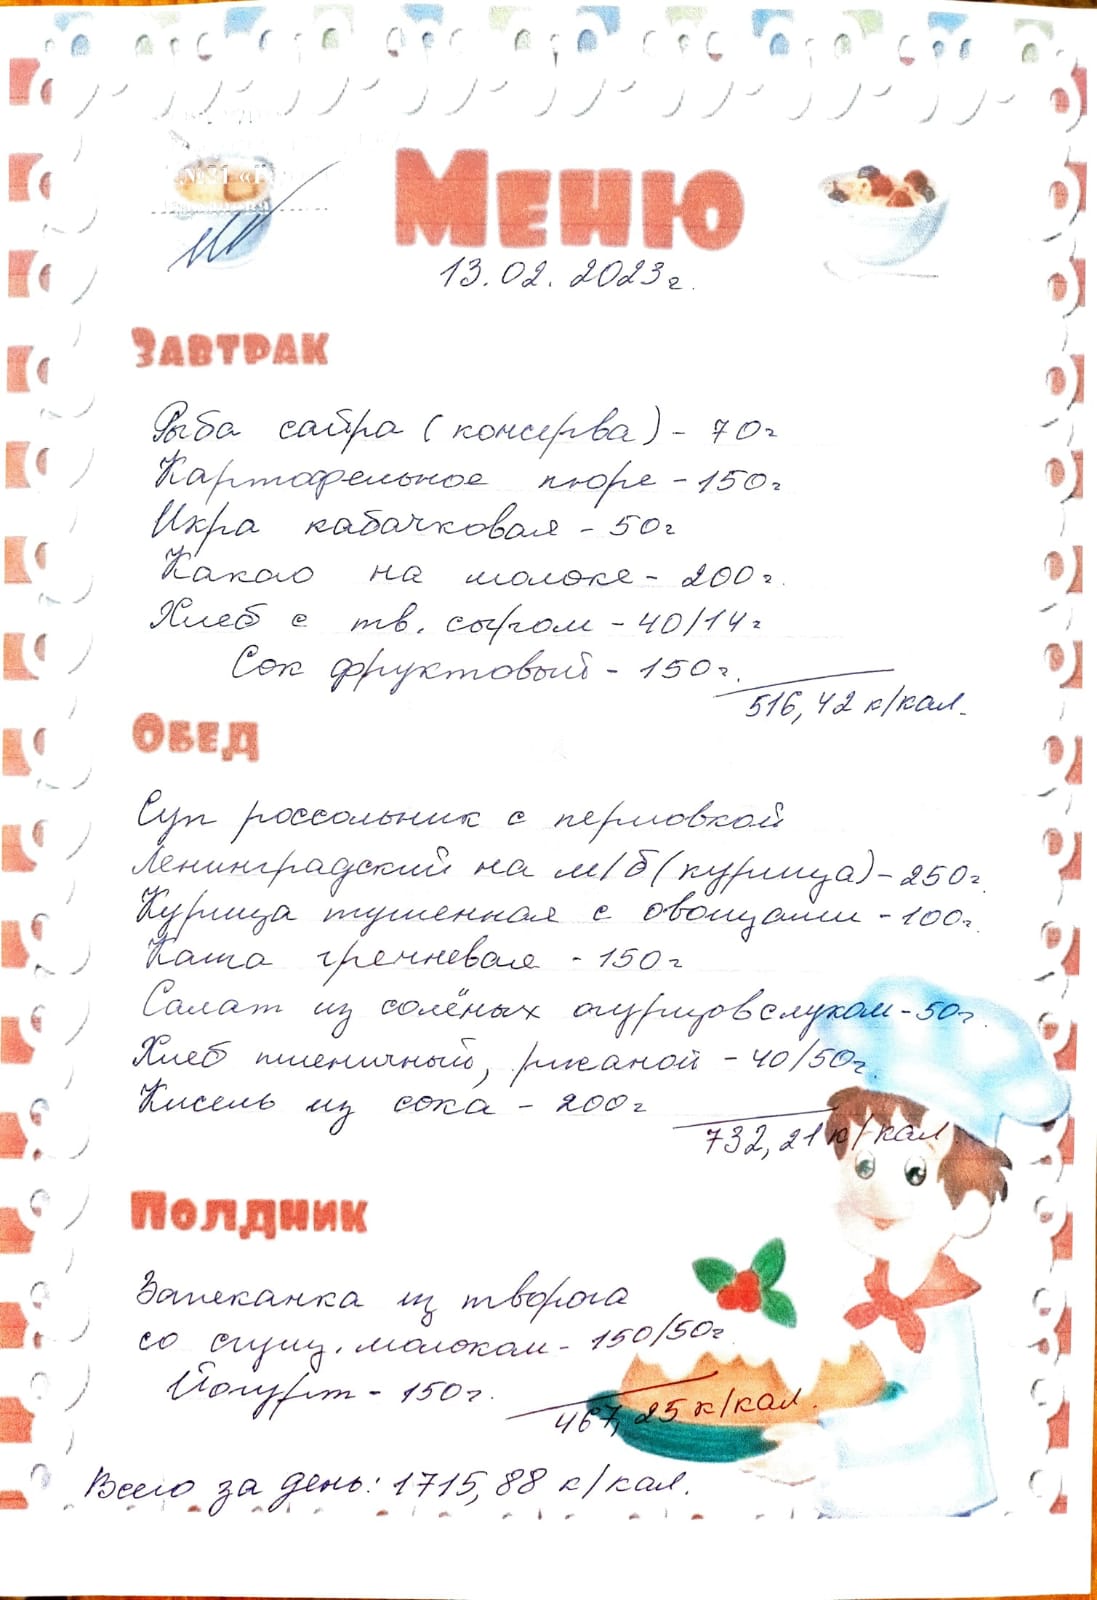 №21
Меню
13.02.2023г.
Завтрак
Рыба сайра (консерва) - 70г
Картофельное пюре - 150г
Икра кабачковая - 50г
Какао на молоке - 200г.
Хлеб с тв. сыром - 40/14г
Сок фруктовый - 150г.
516,42 к/кал.
Обед
Суп россольник с перловкой
Ленинградский на м/б (курица) - 250г.
Курица тушенная с овощами - 100г.
Каша гречневая - 150г
Салат из солёных огурцов с луком - 50г.
Хлеб пшеничный, ржаной - 40/50г.
Кисель из сока - 200г
732,21 к/кал.
Полдник
Запеканка из творога
со сгущ. молоком - 150/50г.
Йогурт - 150г.
467,25 к/кал.
Всего за день: 1715,88 к/кал.